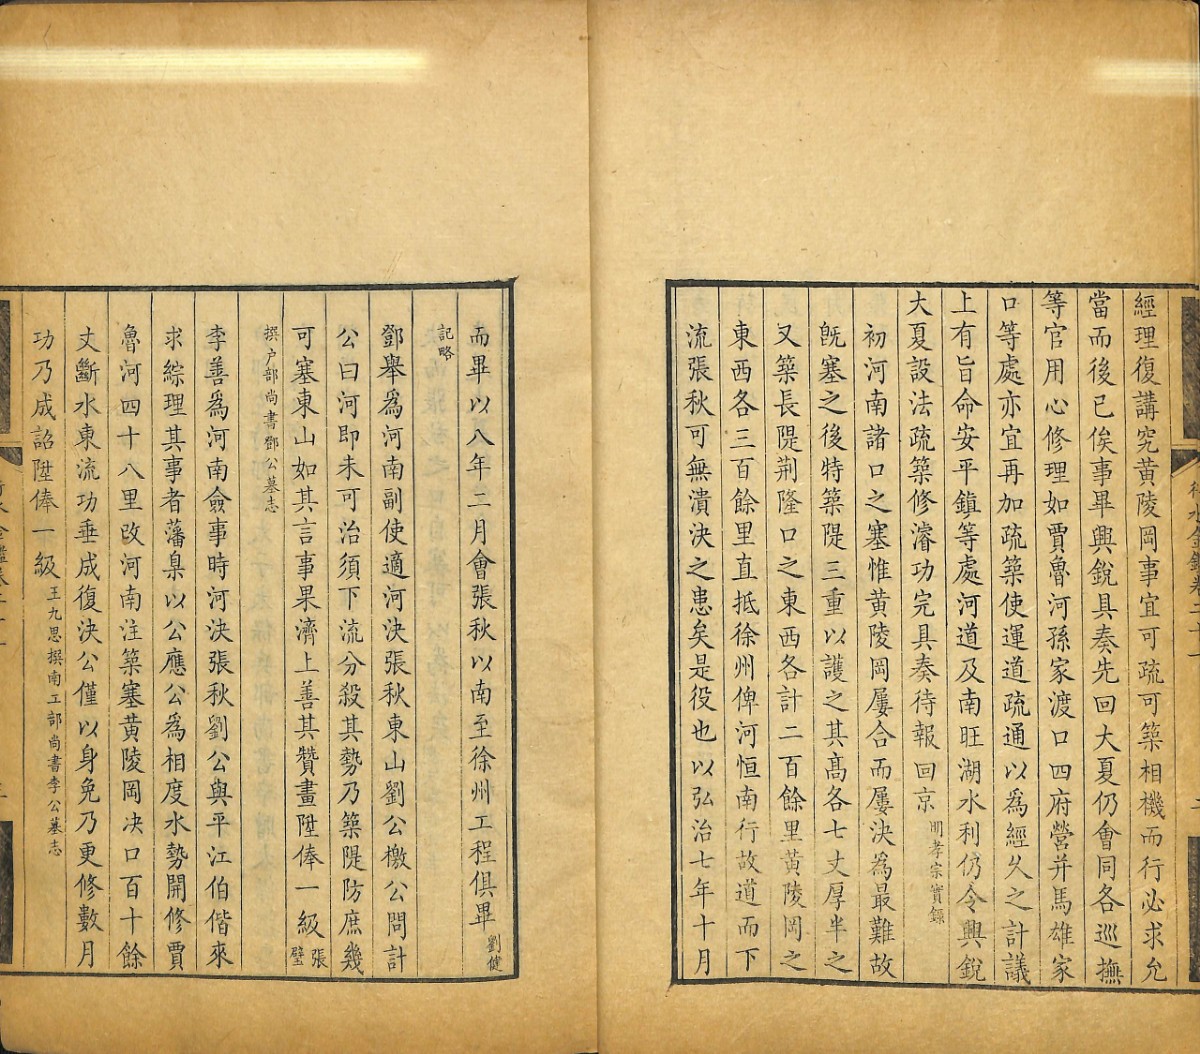 經理復講究黃陵岡事宜可疏可築相機而行必求允
當而後已俟事畢興銳具奏先回大夏仍會同各巡撫
等官用心修理如賈魯河孫家渡口四府營并馬雄家
口等處亦宜再加疏築使運道疏通以為經久之計議
上有旨命安平鎮等處河道及南旺湖水利仍令興銳
大夏設法疏築修濬功完具奏待報回京明孝宗實錄
初河南諸口之塞惟黃陵岡屢合而屢決為最難故
旣塞之後特築隄三重以護之其高各七丈厚半之
又築長隄荆隆口之東西各計二百餘里黃陵岡之
東西各三百餘里直抵徐州俾河恒南行故道而下
流張秋可無潰決之患矣是役也以弘治七年十月
而畢以八年二月會張秋以南至徐州工程俱畢劉健
記略
鄧舉為河南副使適河決張秋東山劉公檄公問計
公曰河即未可治須下流分殺其勢乃築隄防庶幾
可塞東山如其言事果濟上善其贊畫陞俸一級張璧
撰户部尚書鄧公墓志
李善為河南僉事時河決張秋劉公與平江伯偕來
求綜理其事者藩臬以公應公為相度水勢開修賈
魯河四十八里改河南注築塞黃陵岡决口百十餘
丈斷水東流功垂成復決公僅以身免乃更修數月
功乃成詔陞俸一級王九思撰南工部尚書李公墓志